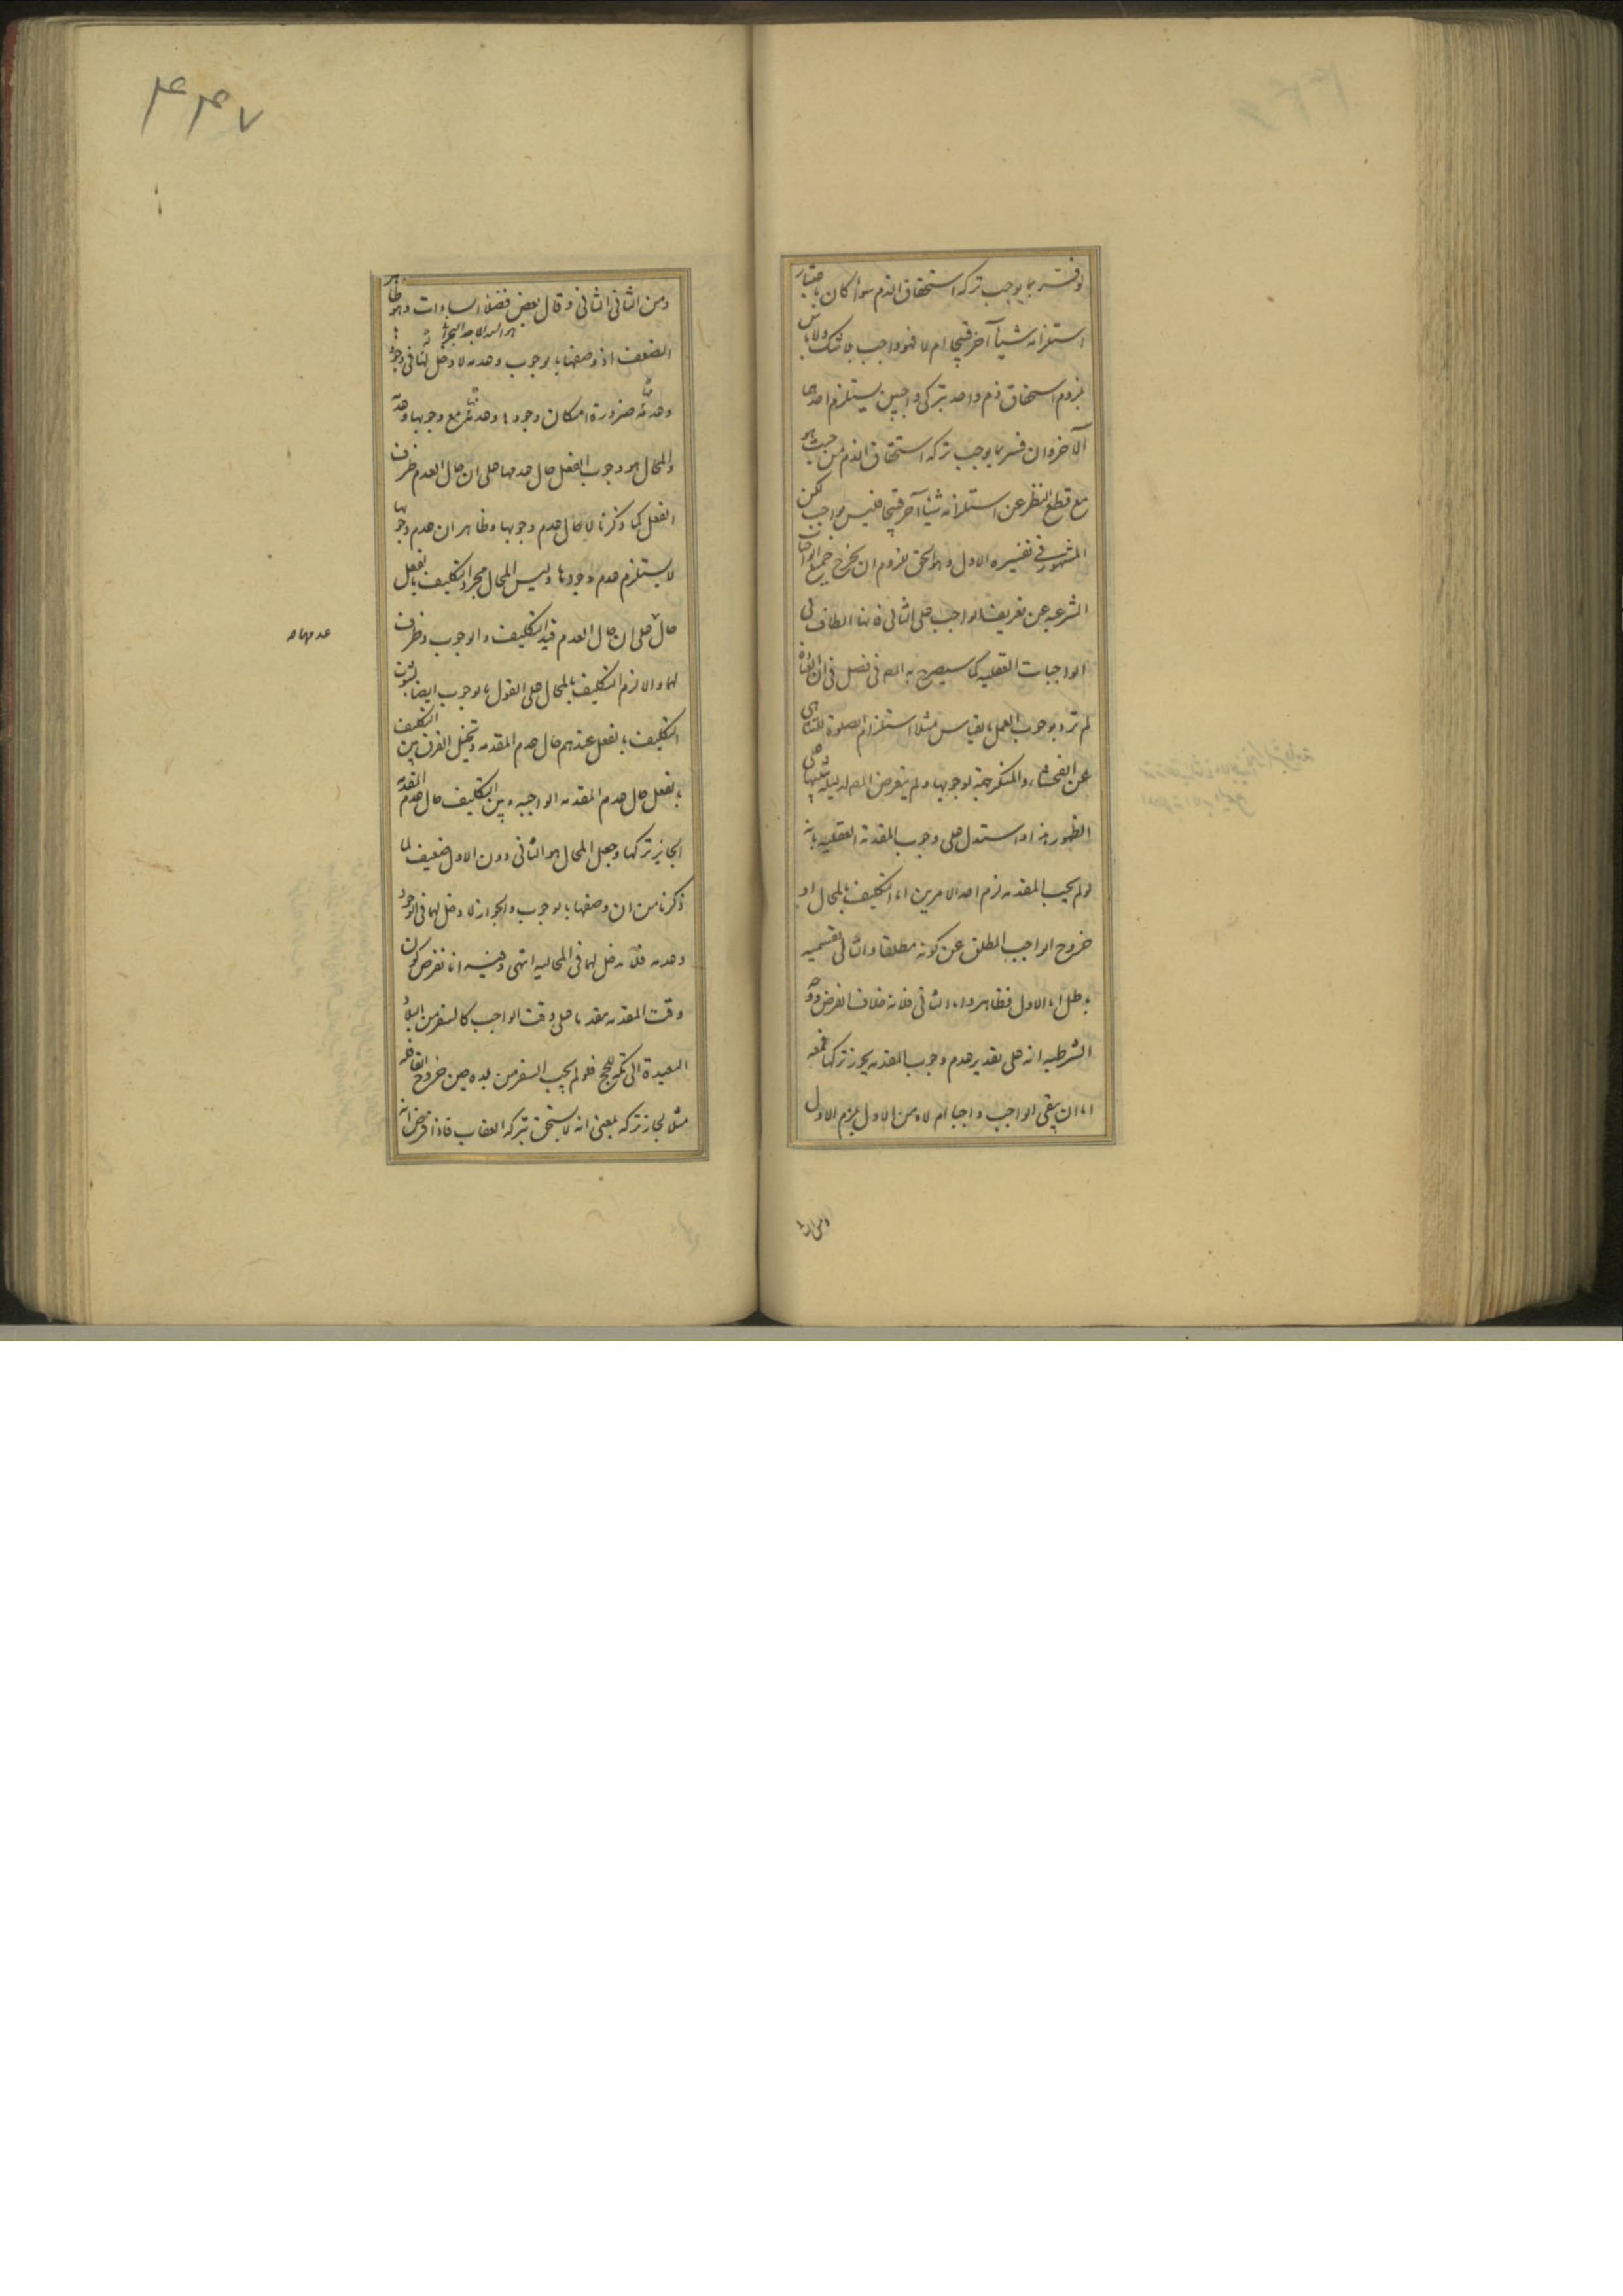 لو فسر بما يوجب تركه استحقاق الذم سواء كان باعتبار
استلزامه شيئا آخر قبيحا ام لا فهو واجب بلا شك ولا باس
بلزوم استحقاق ذم واحد بتركى واجبين يستلزم احدهما
الآخر وان فسر بما يوجب تركه استحقاق الذم من حيث هو
مع قطع النظر عن استلزامه شيئا آخر قبيحا فليس بواجب لكن
المشهور فى تفسيره الاول وهو الحق للزوم ان يخرج جميع الواجبات
الشرعيه عن تعريف الواجب على الثانى فانها الطاف فى
الواجبات العقليه كما سيصرح به المص فى فصل فى ان العبادة
لم ترد بوجوب العمل بقياس مثلا استلزام الصلوة للتناهى
عن الفحشاء والمنكر جهة لوجوبها ولم يتعرض المص لدليله
الظهور هذا واستدل على وجوب المقدمة العقليه بانه
لو لم يجب المقدمه لزم احد الامرين اما التكليف بالمحال او
خروج الواجب المطلق عن كونه مطلقا والتالى بقسميه
باطل اما الاول فظاهر واما الثانى فلانه خلاف الفرض وجه
الشرطيه انه على تقدير عدم وجوب المقدمه يجوز تركها فمعه
اما ان يبقى الواجب واجبا ام لا ومن الاول يلزم الاول
ومن الثانى
۴۴۷
ومن الثانى الثانى وقال بعض فضلاء السادات وهو ظاهر
الضعف اذ وصفها بالوجوب وعدمه لا دخل لها فى وجود
وعدمه ضرورة امكان وجودها وعدمها مع وجوبها وعدمه
والمحال هو وجوب الفعل حال عدمها على ان حال العدم ظرف
الفعل كما ذكرنا لا حال عدم وجوبها وظاهر ان عدم وجوبها
لا يستلزم عدم وجودها وليس المحال مجرد التكليف بالفعل
حال على ان حال العدم قيد التكليف والوجوب وظرف
عدمها صح
لهما والا لزم التكليف بالمحال على القول بالوجوب ايضا لثبوت
التكليف بالفعل عندهم حال عدم المقدمه وتخيل الفرق بين التكليف
بالفعل حال عدم المقدمه الواجبه وبين التكليف حال عدم المقدمه
الجايز تركها وجعل المحال هو الثانى دون الاول ضعيف لما
ذكرنا من ان وصفها بالوجوب والجواز لا دخل لهما فى الوجود
وعدمه فلا مدخل لهما فى المحاليه انتهى وفيه انا نفرض كون
وقت المقدمه مقدما على وقت الواجب كالسفر من البلاد
البعيدة الى مكه للحج فلو لم يجب السفر من بلده حين خروج القافله
مثلا لجاز تركه بمعنى انه لا يستحق بتركه العقاب فاذا فرض انه